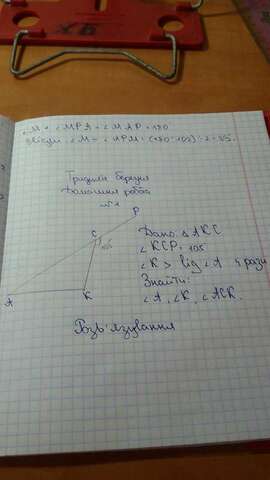 ∠M + ∠MPA + ∠MAP = 180
Звідси ∠M = ∠APM = (180 - 105) : 2 =
Тридцяте березня
Домашня робота
№1
P
C
105
A
K
Дано: △AKC
∠KCP = 105
∠K > від ∠A 4 рази
Знайти:
∠A, ∠K, ∠ACK.
Розв'язування